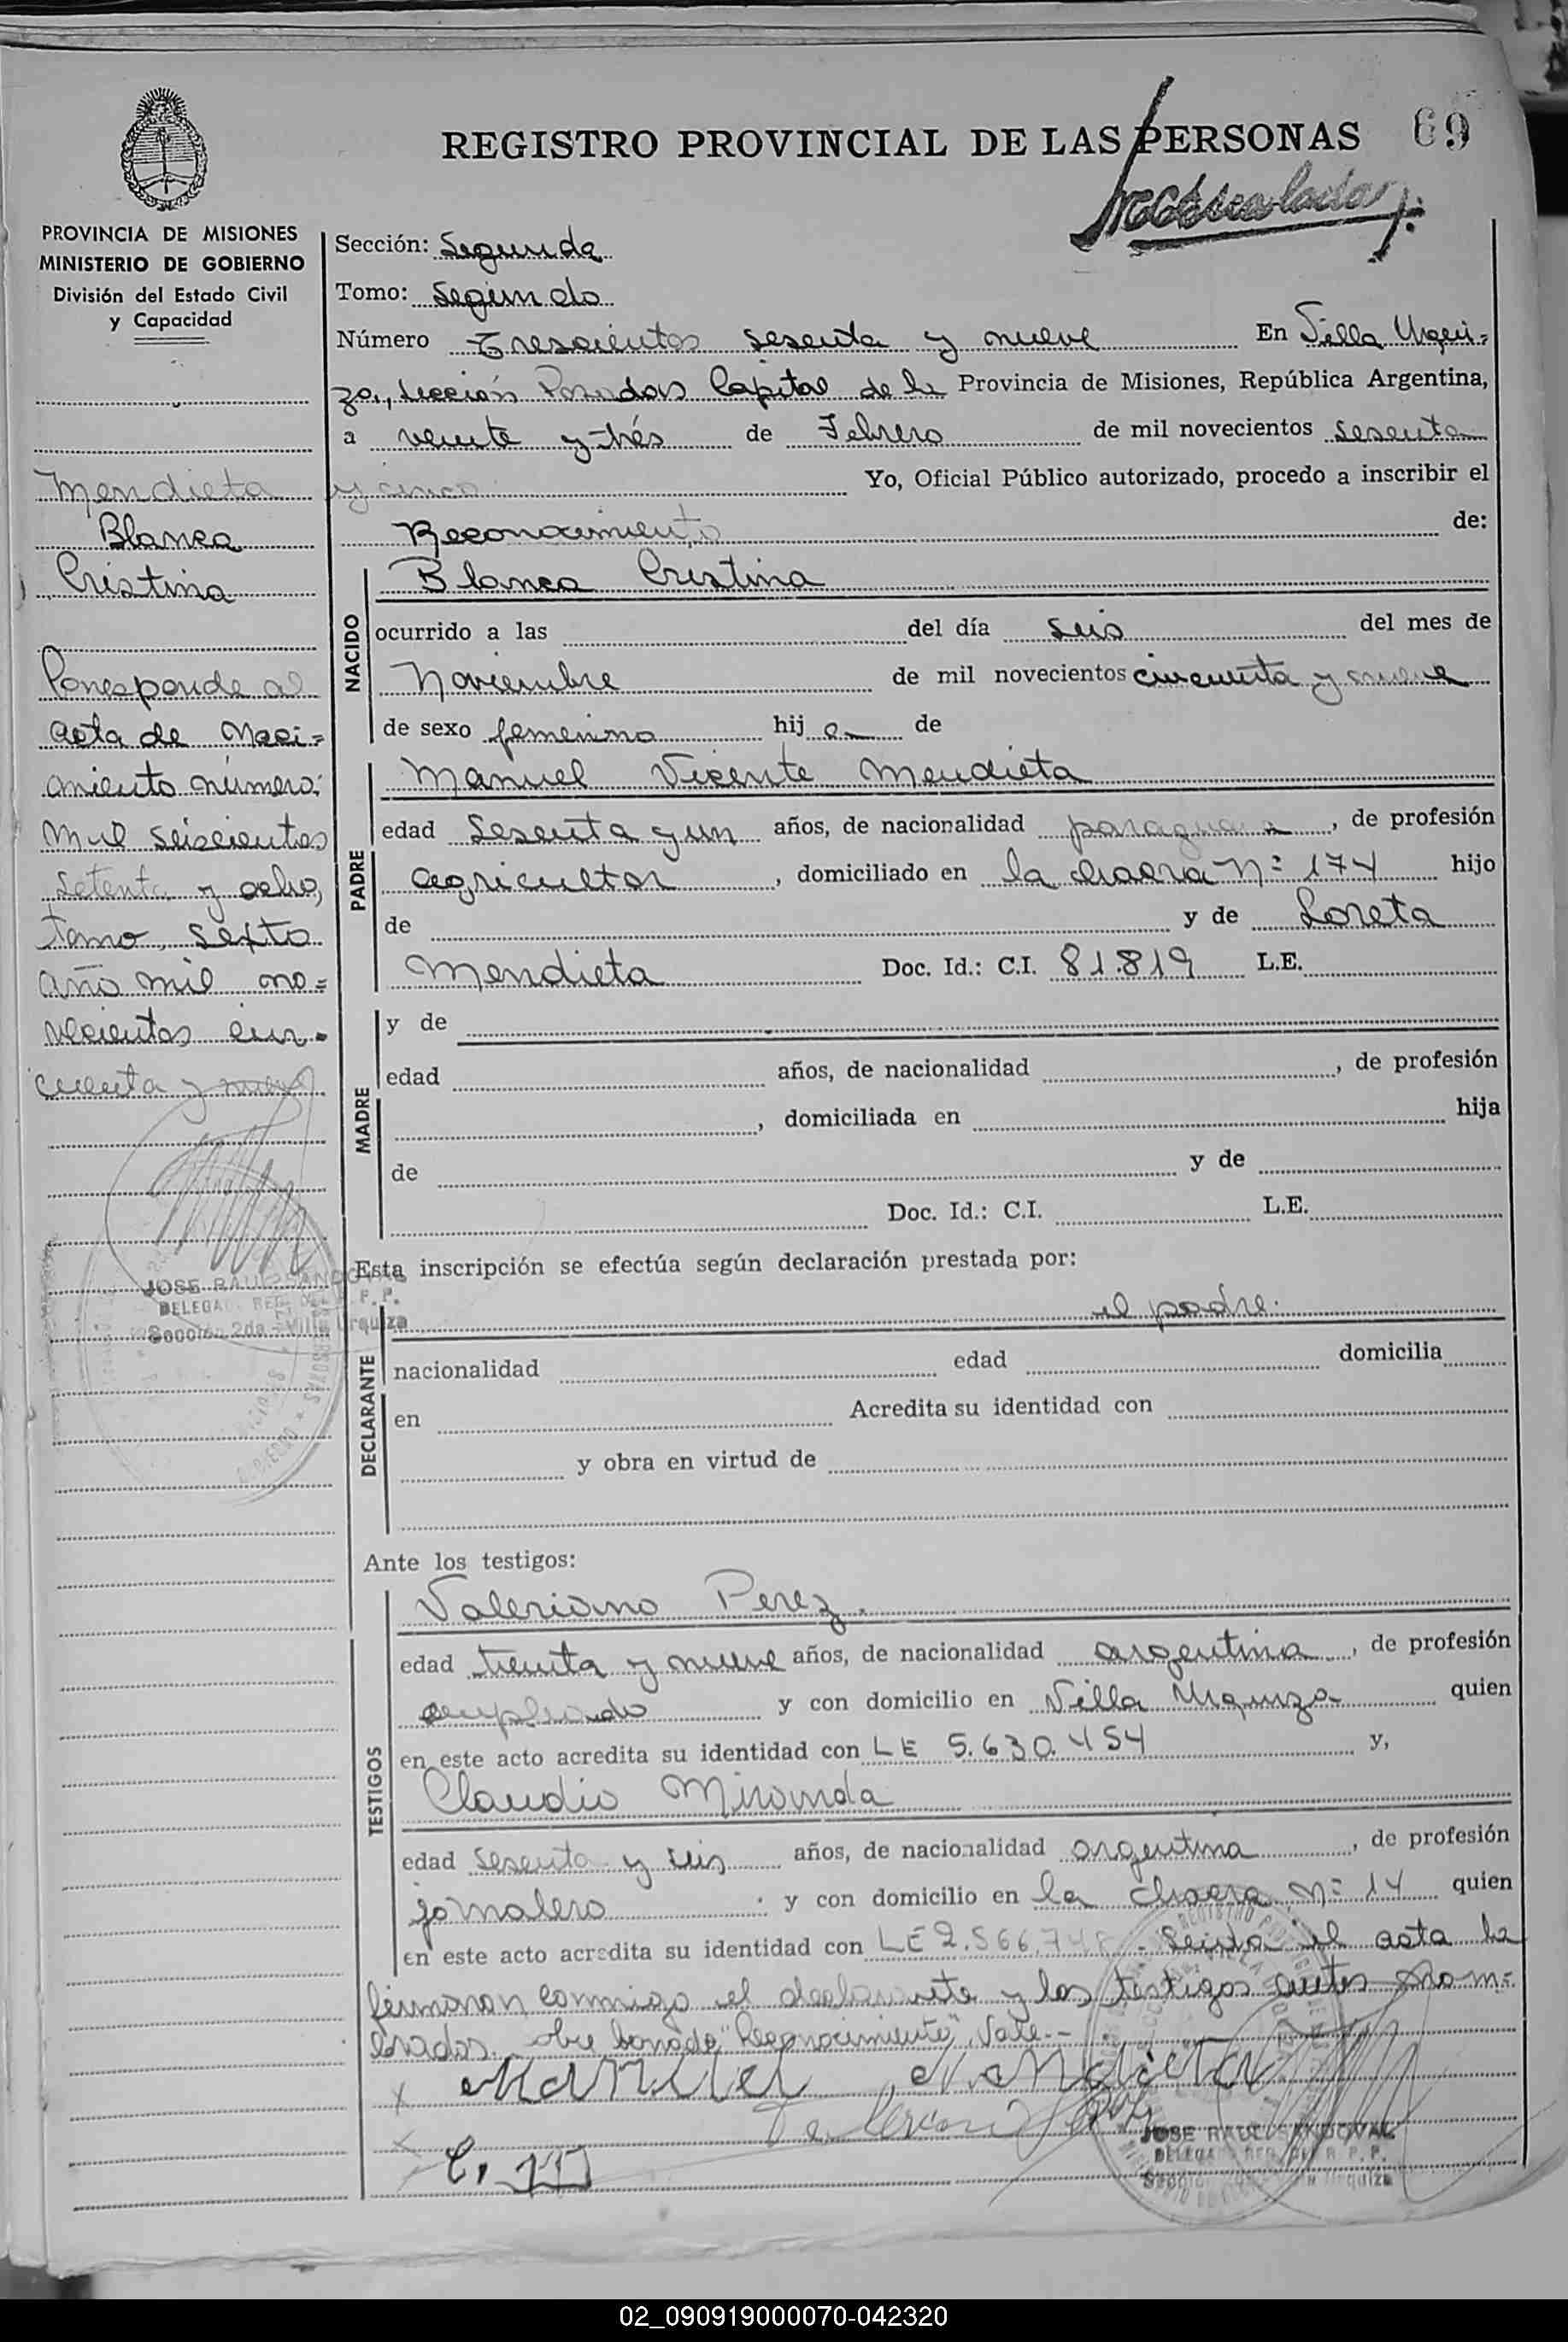 REGISTRO PROVINCIAL DE LAS PERSONAS 69
PROVINCIA DE MISIONES
MINISTERIO DE GOBIERNO
División del Estado Civil
y Capacidad
Mendieta
Blanca
Cristina
Corresponde al
acta de Naci=
miento número:
mil seiscientos
setenta y ocho,
tomo, sexto
año mil no=
vecientos cin-
cuenta y nueve
JOSE RAUL SANDOVAL
DELEGADO REG. DEL R. P. P.
Sección 2da - Villa Urquiza
Sección: Segunda
Tomo: Segundo
Número Trescientos sesenta y nueve En Villa Urqui=
za, sección Posadas Capital de la Provincia de Misiones, República Argentina,
a veinte y trés de Febrero de mil novecientos sesenta
y cinco Yo, Oficial Público autorizado, procedo a inscribir el
Reconocimiento de:
NACIDO
Blanca Cristina
ocurrido a las del día seis del mes de
Noviembre de mil novecientos cincuenta y nueve
de sexo femenino hij a de
PADRE
Manuel Vicente Mendieta
edad Sesenta y un años, de nacionalidad paraguaya, de profesión
agricultor, domiciliado en la chacra Nº 174 hijo
de y de Loreta
Mendieta Doc. Id.: C.I. 81.819 L.E.
MADRE
y de
edad años, de nacionalidad , de profesión
, domiciliada en hija
de y de
Doc. Id.: C.I. L.E.
Esta inscripción se efectúa según declaración prestada por:
el padre.
DECLARANTE
nacionalidad edad domicilia
en Acredita su identidad con
y obra en virtud de
Ante los testigos:
TESTIGOS
Valeriano Perez.
edad treinta y nueve años, de nacionalidad argentina, de profesión
empleado y con domicilio en Villa Urquiza quien
en este acto acredita su identidad con LE 5.630.454 y,
Claudio Miranda
edad Sesenta y seis años, de nacionalidad argentina, de profesión
jornalero y con domicilio en la chacra Nº 14 quien
en este acto acredita su identidad con LE 2.566.748. Leida el acta la
firmaron conmigo el declarante y los testigos antes nom=
brados. Sobre borrado "Reconocimiento". Vale.-
X Manuel Mendieta
X Valeriano Perez
C. M
JOSE RAUL SANDOVAL
DELEGADO REG. DEL R. P. P.